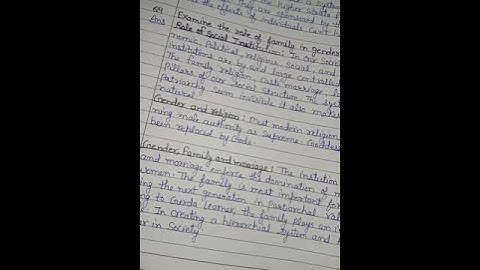 n a system
the higher
They are sponsored by th
the effects of individuals can't h
Q4 Examine the role of family in gender
Ans Role of Social Institution: In our Societ
nomic, Political religious Social, and
institutions are by and large controlled
The family religion, caste marriage,
Pillars of our Social structure. The Syst
Patriarchy Seem invisible it also makes
natural.
Gender and religion: Most modern religion
ning male authority as Supreme. Goddess
been replaced by Gods.
Gender, Family and marriage: The Instution
and marriage enforce the domination of m
women. The family is most important for
ing the next generation in Patriarchal Val
ng to Gerda Learner, the family plays an i
In creating a hierarchial system and
er in Society